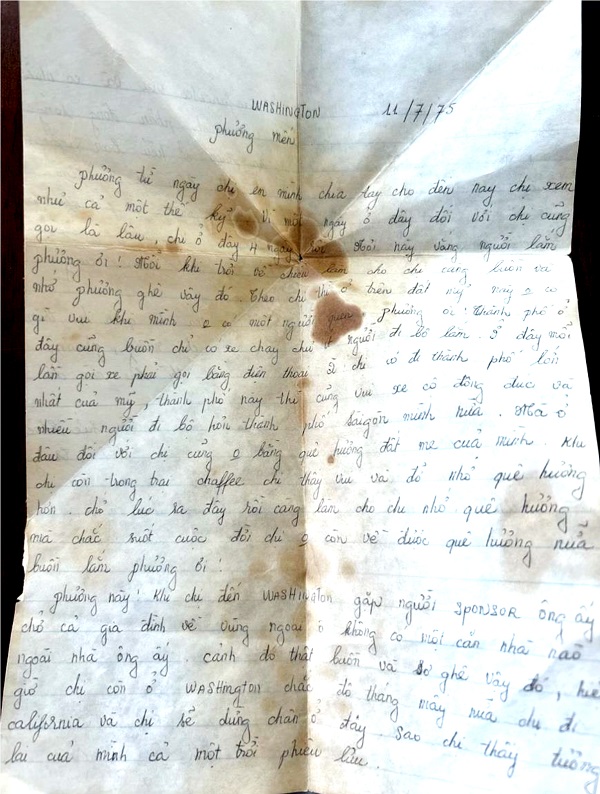 WASHINGTON 11/7/75
phưởng mến
phưởng từ ngày chị em mình chia tay cho đến nay chị xem
như cả một thế kỷ Vì một ngày ở đây đối với chị cũng
gọi là lâu, chị ở đây 4 ngày rồi Nơi này vắng người lắm
phưởng ơi! Mỗi khi trời về chiều làm cho chị cũng buồn và
nhớ phưởng ghê vậy đó. Theo chị thì ở trên đất mỹ này o có
gì vui khi mình o có một người quen phưởng ơi. Thành phố ở
đây cũng buồn chỉ có xe chạy chứ ít người đi bộ lắm. Ở đây mỗi
lần gọi xe phải gọi bằng điện thoại chị có đi thành phố lớn
nhất của mỹ, thành phố này thì cũng vui xe cộ đông đúc và
nhiều người đi bộ hơn thành phố saigòn mình nữa. Mà ở
đâu đối với chị cũng o bằng quê hưởng đất mẹ của mình. Khi
chị còn trong trại chaffee chị thấy vui và đỡ nhớ quê hưởng
hơn. chớ lúc ra đây rồi càng làm cho chị nhớ quê hưởng
mà chắc suốt cuộc đời chị o còn về được quê hưởng nữa
buồn lắm phưởng ơi!
phưởng này! Khi chị đến WASHINGTON gặp người SPONSOR ông ấy
chở cả gia đình về vùng ngoại ô không có một căn nhà nào
ngoài nhà ông ấy. cảnh đó thật buồn và sợ ghê vậy đó, hiện
giờ chị còn ở WASHINGTON chắc độ tháng mấy nữa chị đi
california và chị sẽ dừng chân ở đây. Sao chị thấy tưởng
lai của mình cả một trời phiêu lưu.